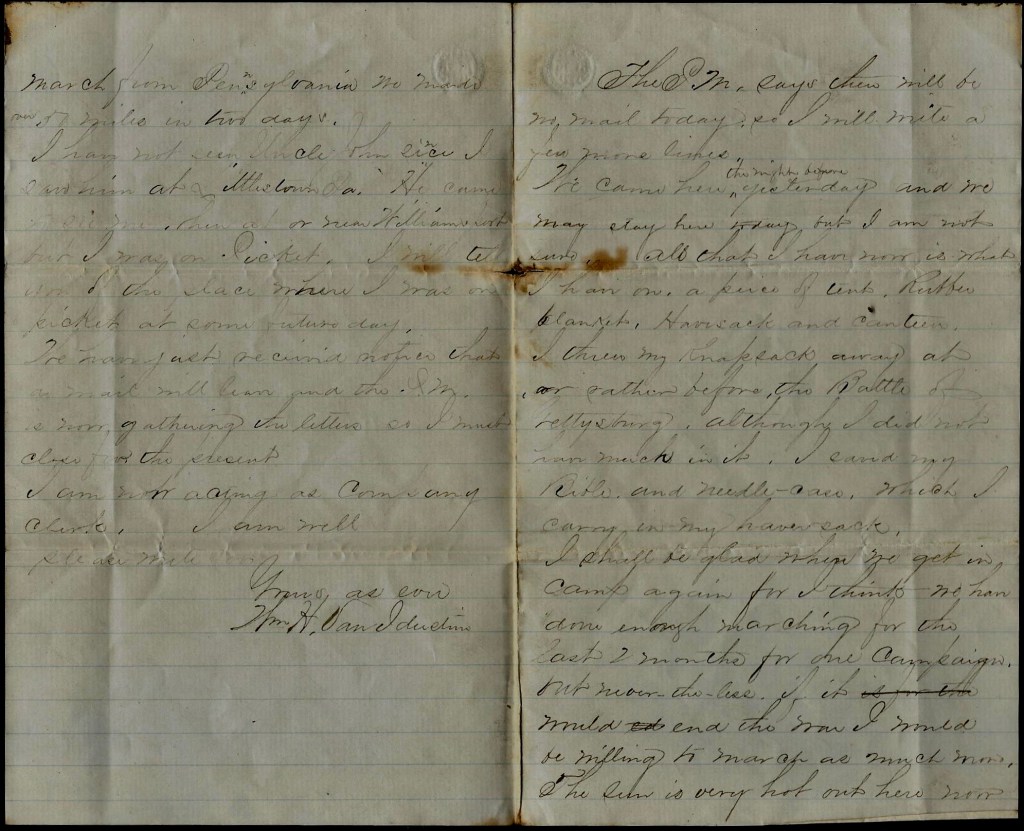 march from Pennsylvania we made
over 50 miles in two days.
I have not seen Uncle Tom since I
saw him at Littlestown Pa. He came
to see me when at or near Williamsport
but I was on Picket. I will tell
you of the place where I was on
picket at some future day.
We have just received notice that
a mail will leave and the P.M.
is now gathering the letters so I must
close for the present
I am now acting as Company
Clerk. I am well
please write
Yours as ever
Wm H. Van
The P.M. says there will be
no mail today, so I will write a
few more lines.
the night before
We came here yesterday and we
may stay here today but I am not
sure, all that I have now is what
I have on. a piece of tent, Rubber
blanket, Haversack and canteen.
I threw my Knapsack away at
or rather before, the Battle of
Gettysburg, although I did not
have much in it. I saved my
Bible, and needle-case, which I
carry in my haversack.
I shall be glad when we get in
camp again for I think we have
done enough marching for the
last 2 months for one Campaign.
but never-the-less. if it is for the
would ed end the war I would
be willing to march as much more.
The sun is very hot out here now